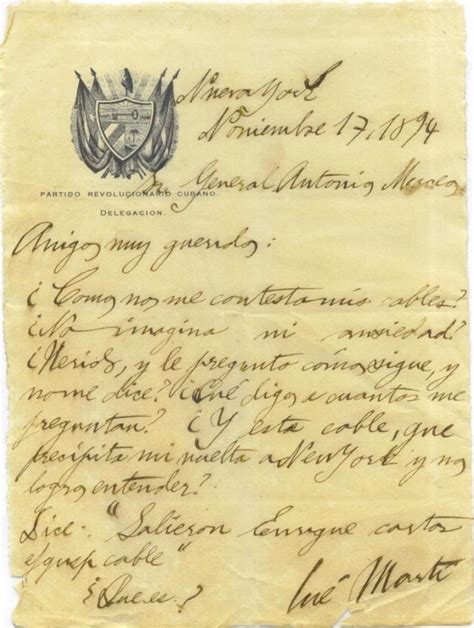 Nueva York
Noviembre 17, 1894
PARTIDO REVOLUCIONARIO CUBANO.
DELEGACION.
Sr. General Antonio Maceo
Amigo muy querido:
¿Como no me contesta mis cables?
¿No imagina mi ansiedad?
¿Herido, y le pregunto cómo sigue, y
no me dice? ¿Qué digo a cuantos me
preguntan? ¿Y este cable, que
precipita mi vuelta a New York y no
logro entender?
Dice: "Salieron Enrique cartas
cable"
¿Que es?
José Martí